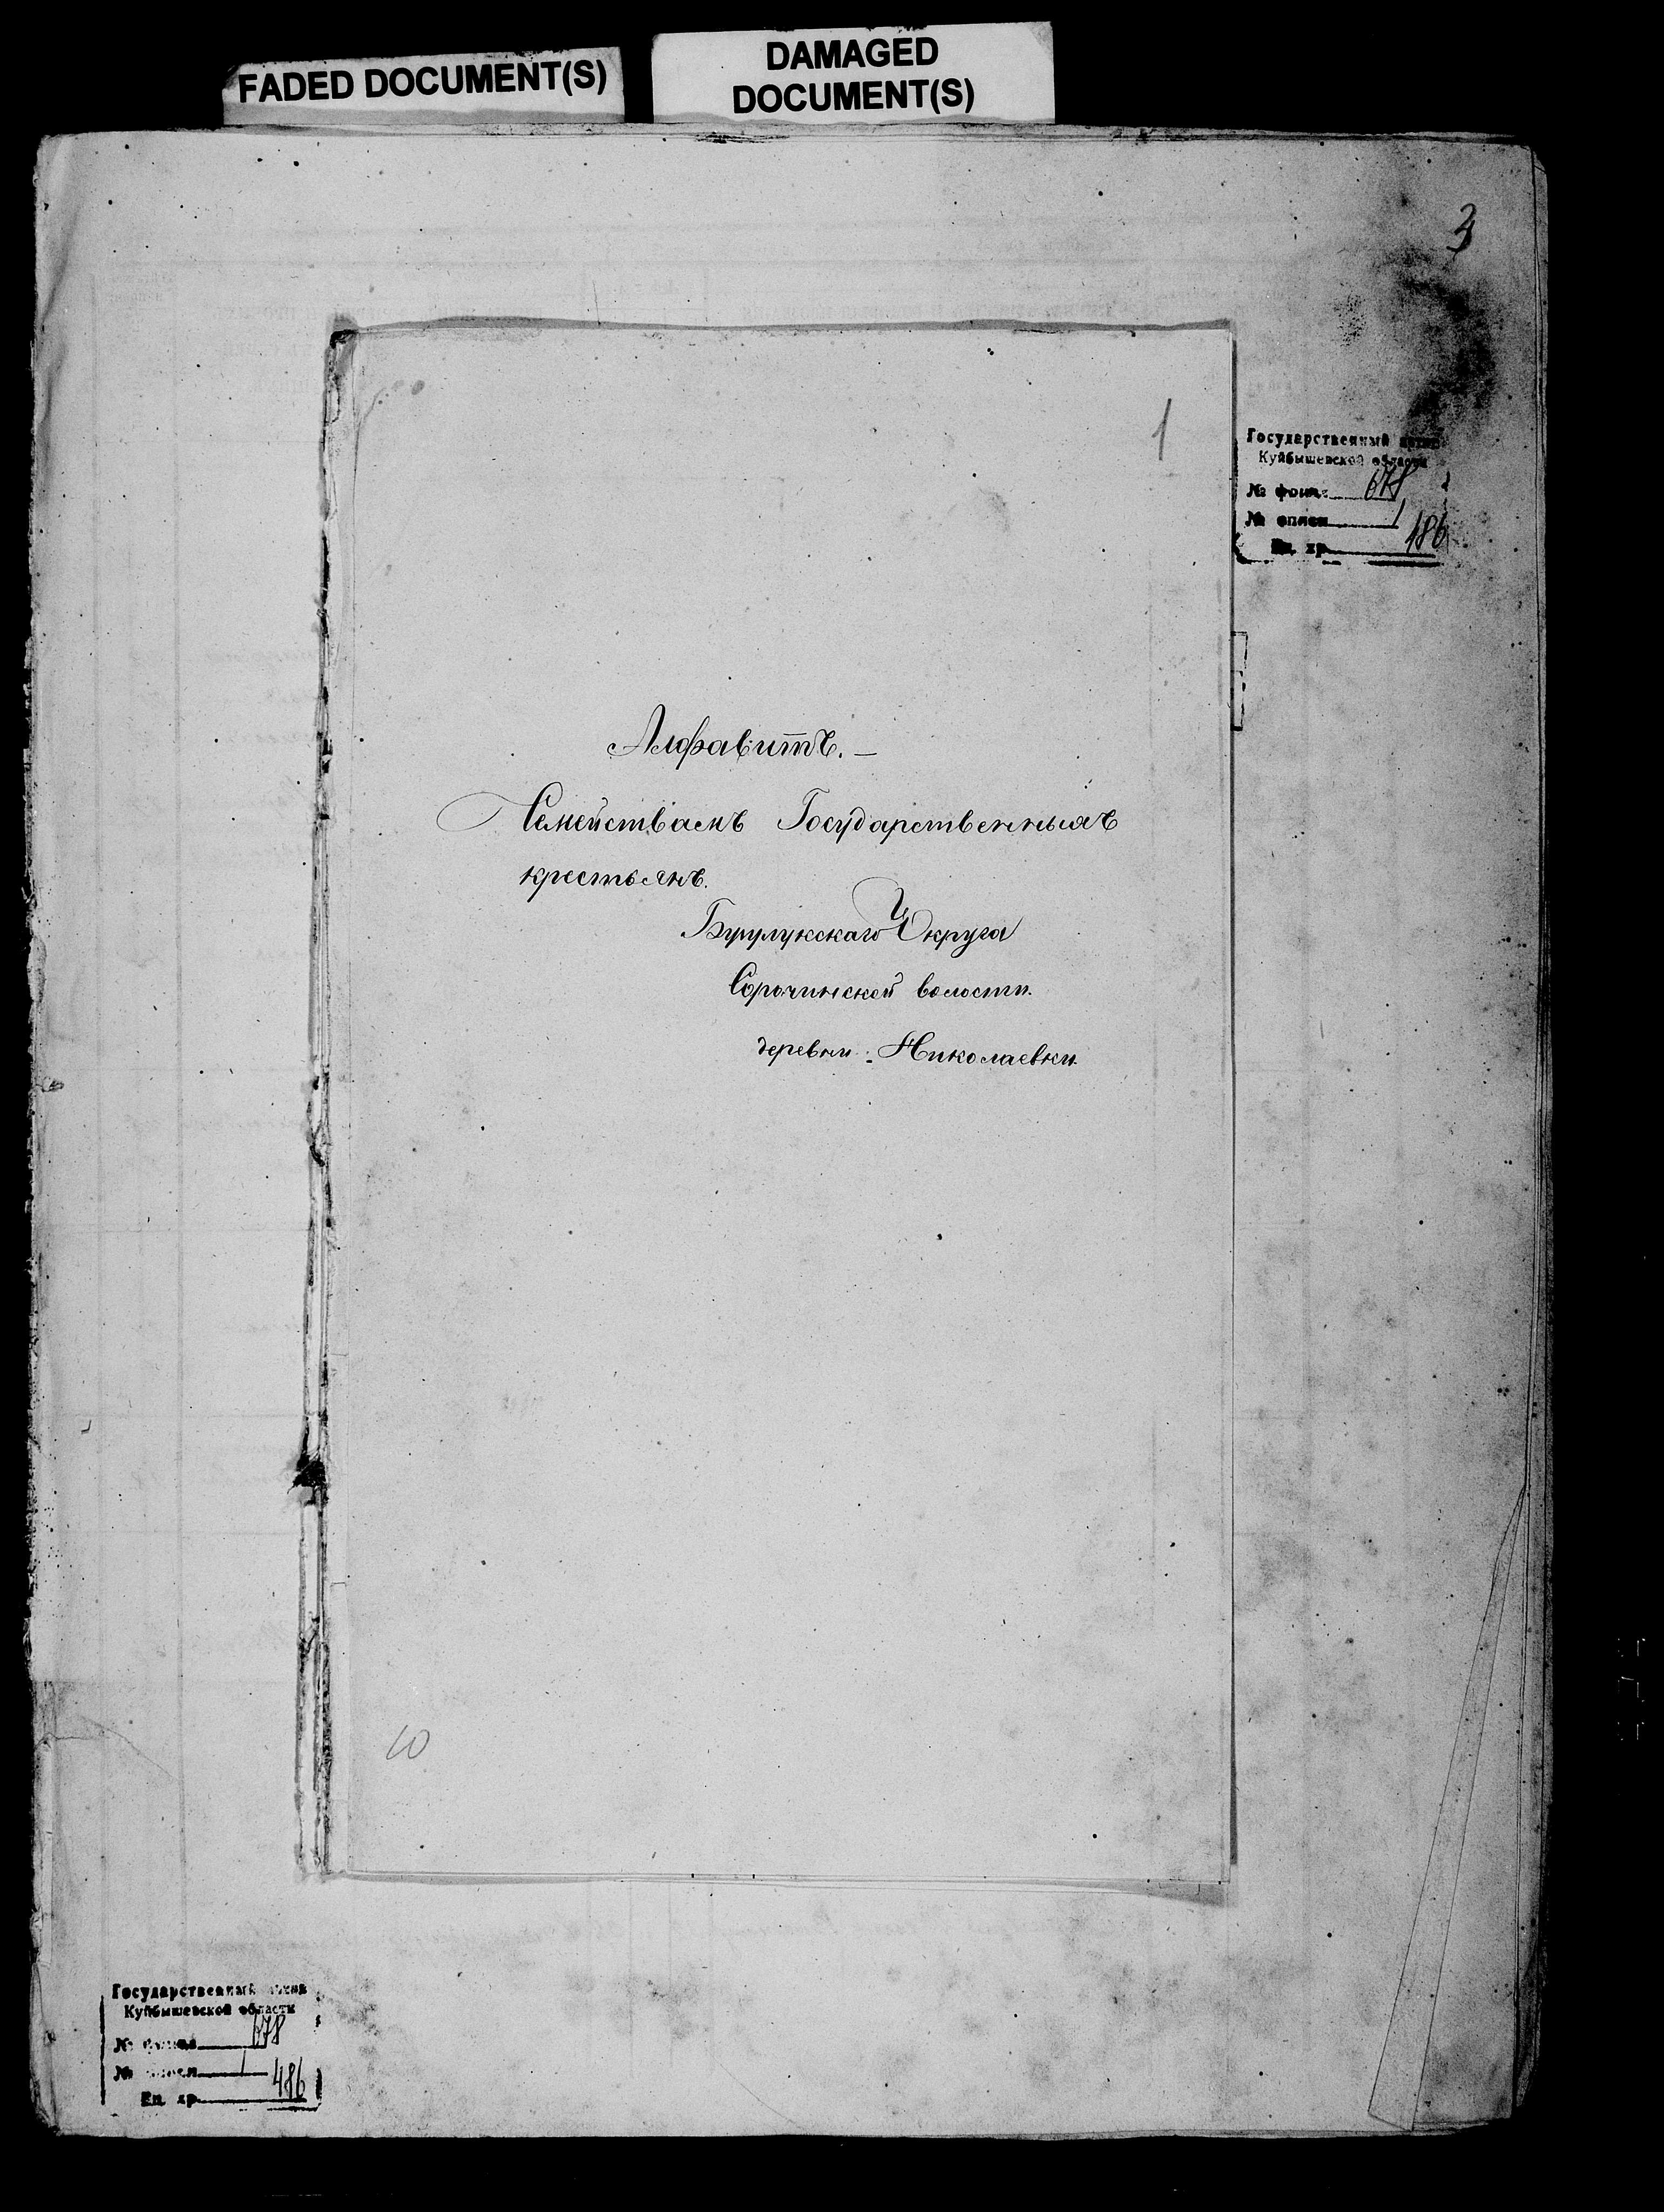 FADED DOCUMENT(S)
DAMAGED
DOCUMENT(S)
3
1
Государственный архив
Куйбышевской области
№ фонда 678
№ описи 1
Ед. хр. 486
Алфавитъ. —
Семействамъ Государственныхъ
крестьянъ.
Бузулукскаго Округа
Сорочинской волости.
деревни: Николаевки.
10
Государственный архив
Куйбышевской области
№ фонда 678
№ описи 1
Ед. хр. 486